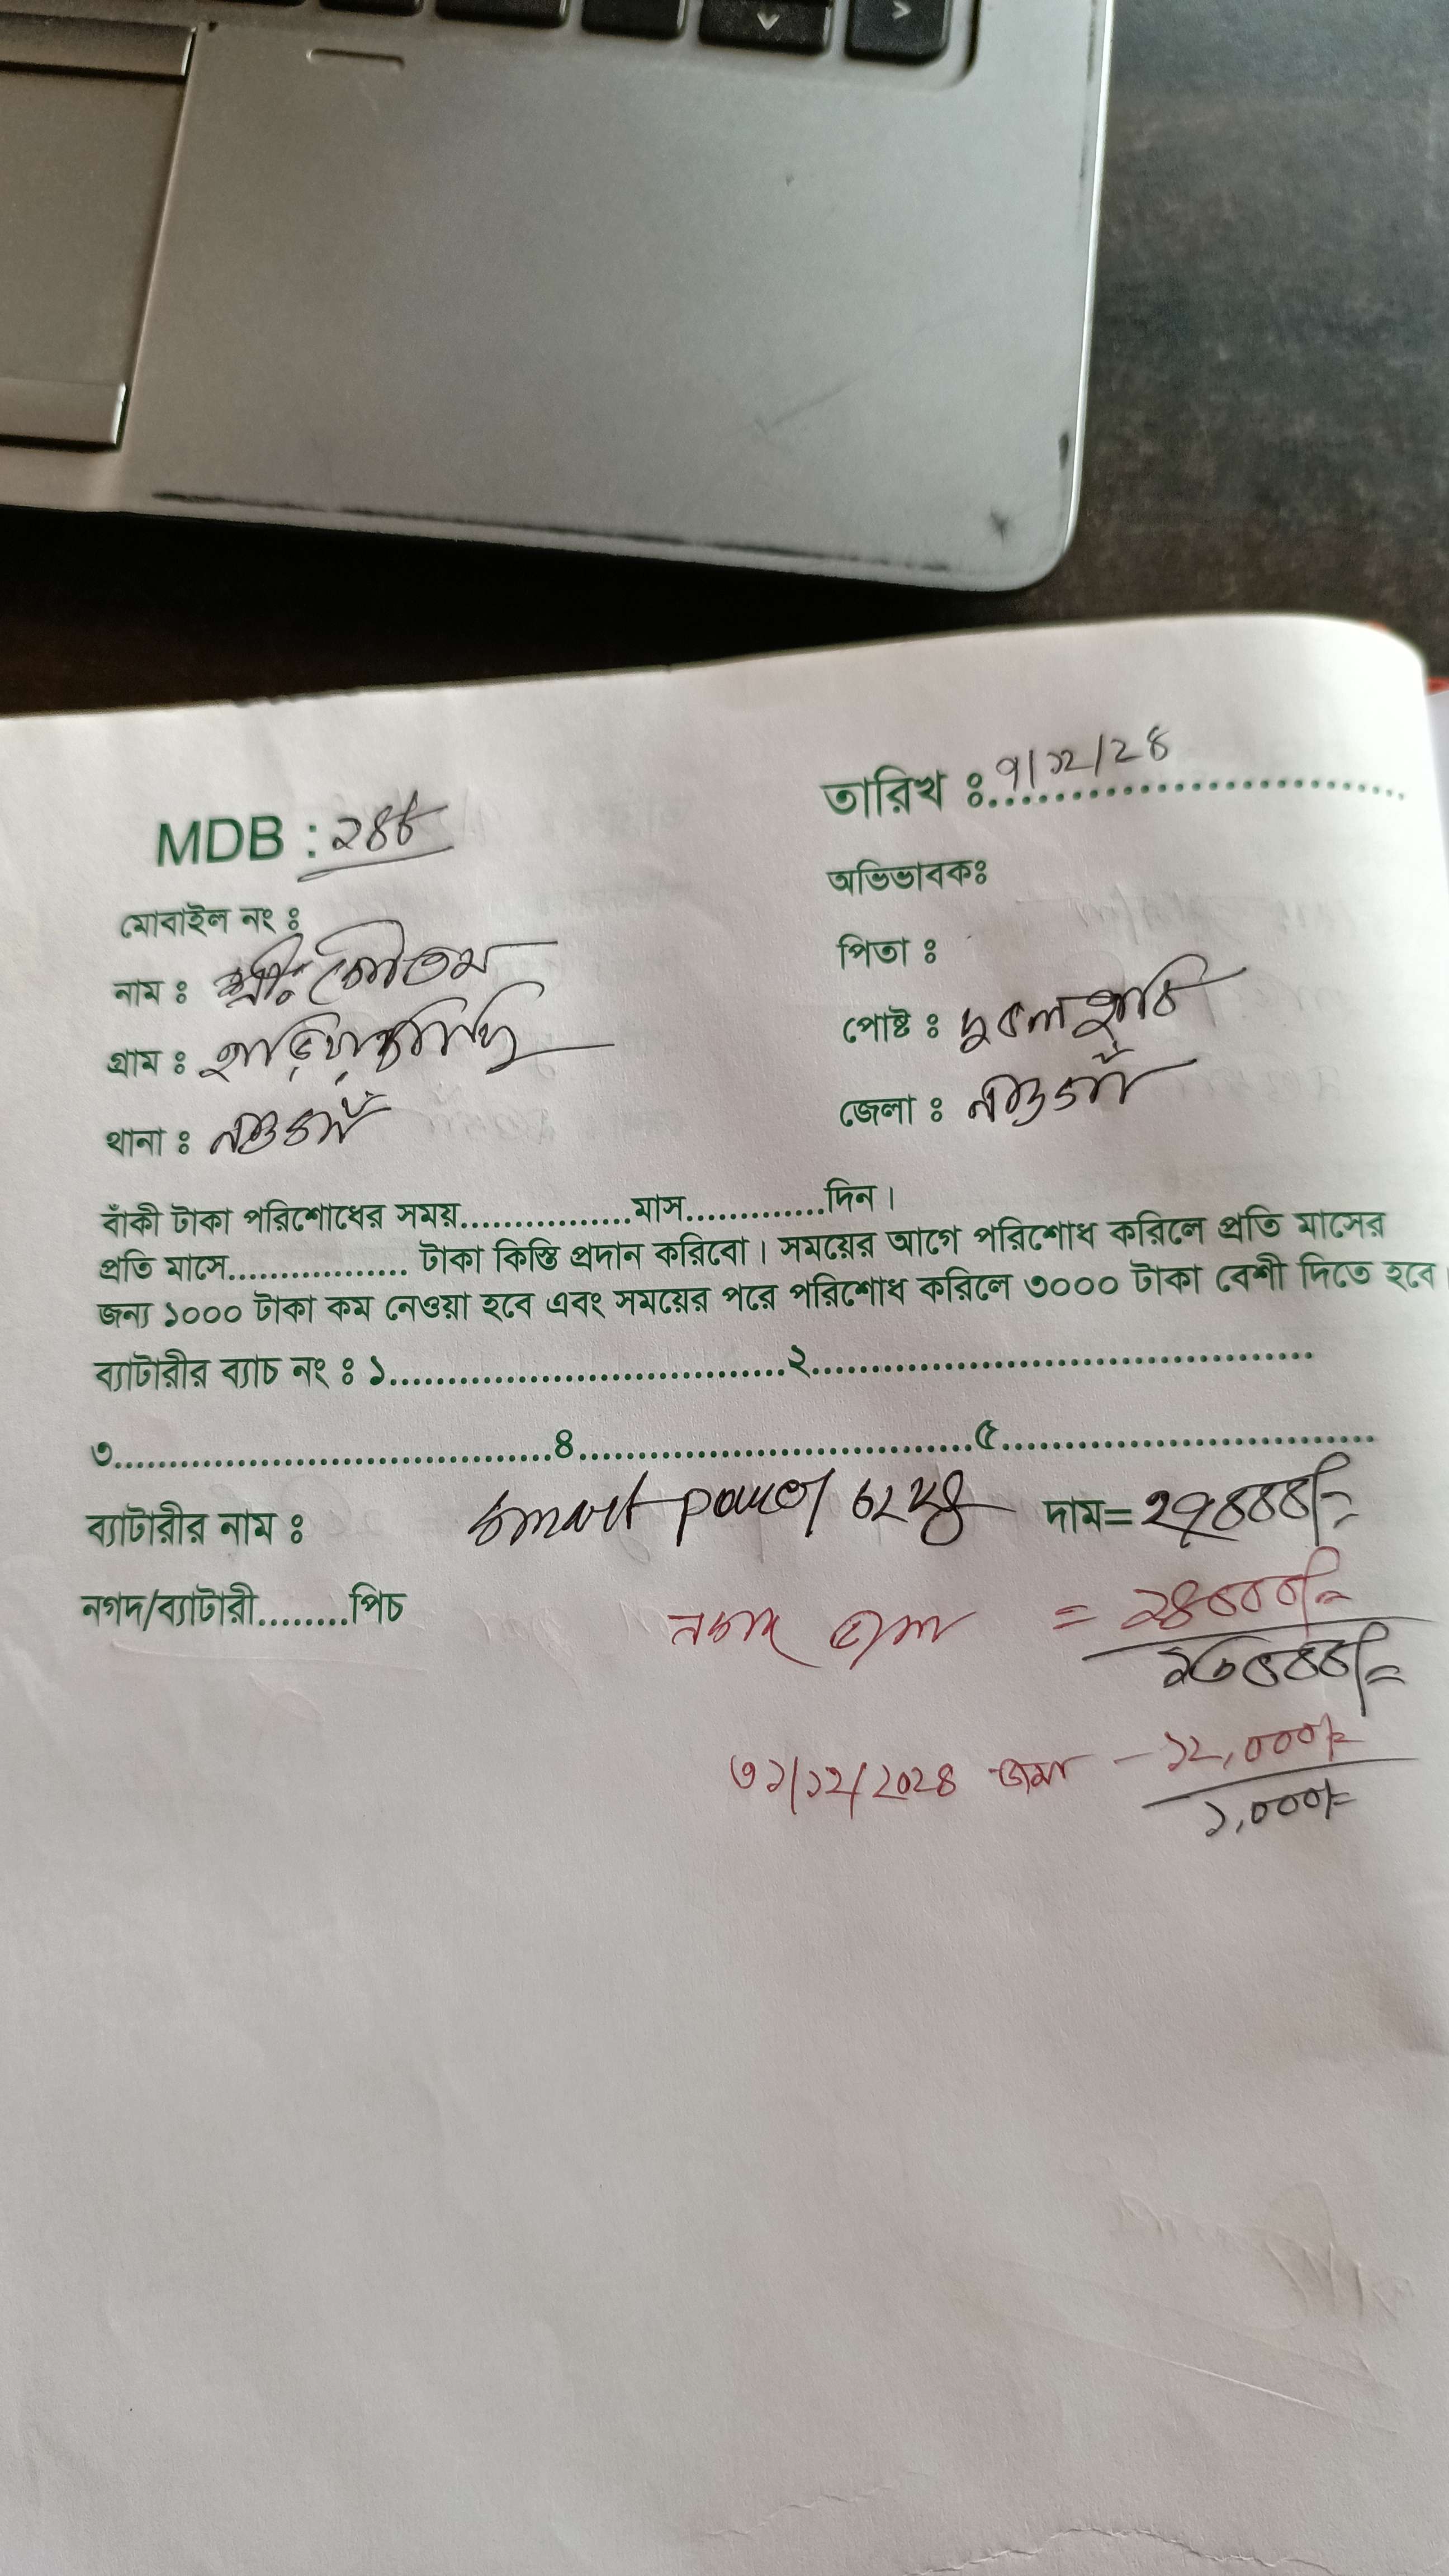 তারিখ ঃ ৭/১২/২৪
MDB : ২৪৮
অভিভাবকঃ
মোবাইল নং ঃ
পিতা ঃ
নাম ঃ শ্রীঃ গৌতম
পোষ্ট ঃ দুবলহাটি
গ্রাম ঃ
থানা ঃ নওগাঁ
জেলা ঃ নওগাঁ
বাঁকী টাকা পরিশোধের সময়................মাস.............দিন।
প্রতি মাসে................. টাকা কিস্তি প্রদান করিবো। সময়ের আগে পরিশোধ করিলে প্রতি মাসের
জন্য ১০০০ টাকা কম নেওয়া হবে এবং সময়ের পরে পরিশোধ করিলে ৩০০০ টাকা বেশী দিতে হবে।
ব্যাটারীর ব্যাচ নং ঃ ১....................................২..........................................
৩.....................................৪.................................৫................................
ব্যাটারীর নাম ঃ smart power দাম= ২৭০০০/=
নগদ/ব্যাটারী........পিচ
নগদ জমা = ১৪০০০/=
১৩০০০/=
৩১/১২/২০২৪ জমা - ১২,০০০/=
১,০০০/=